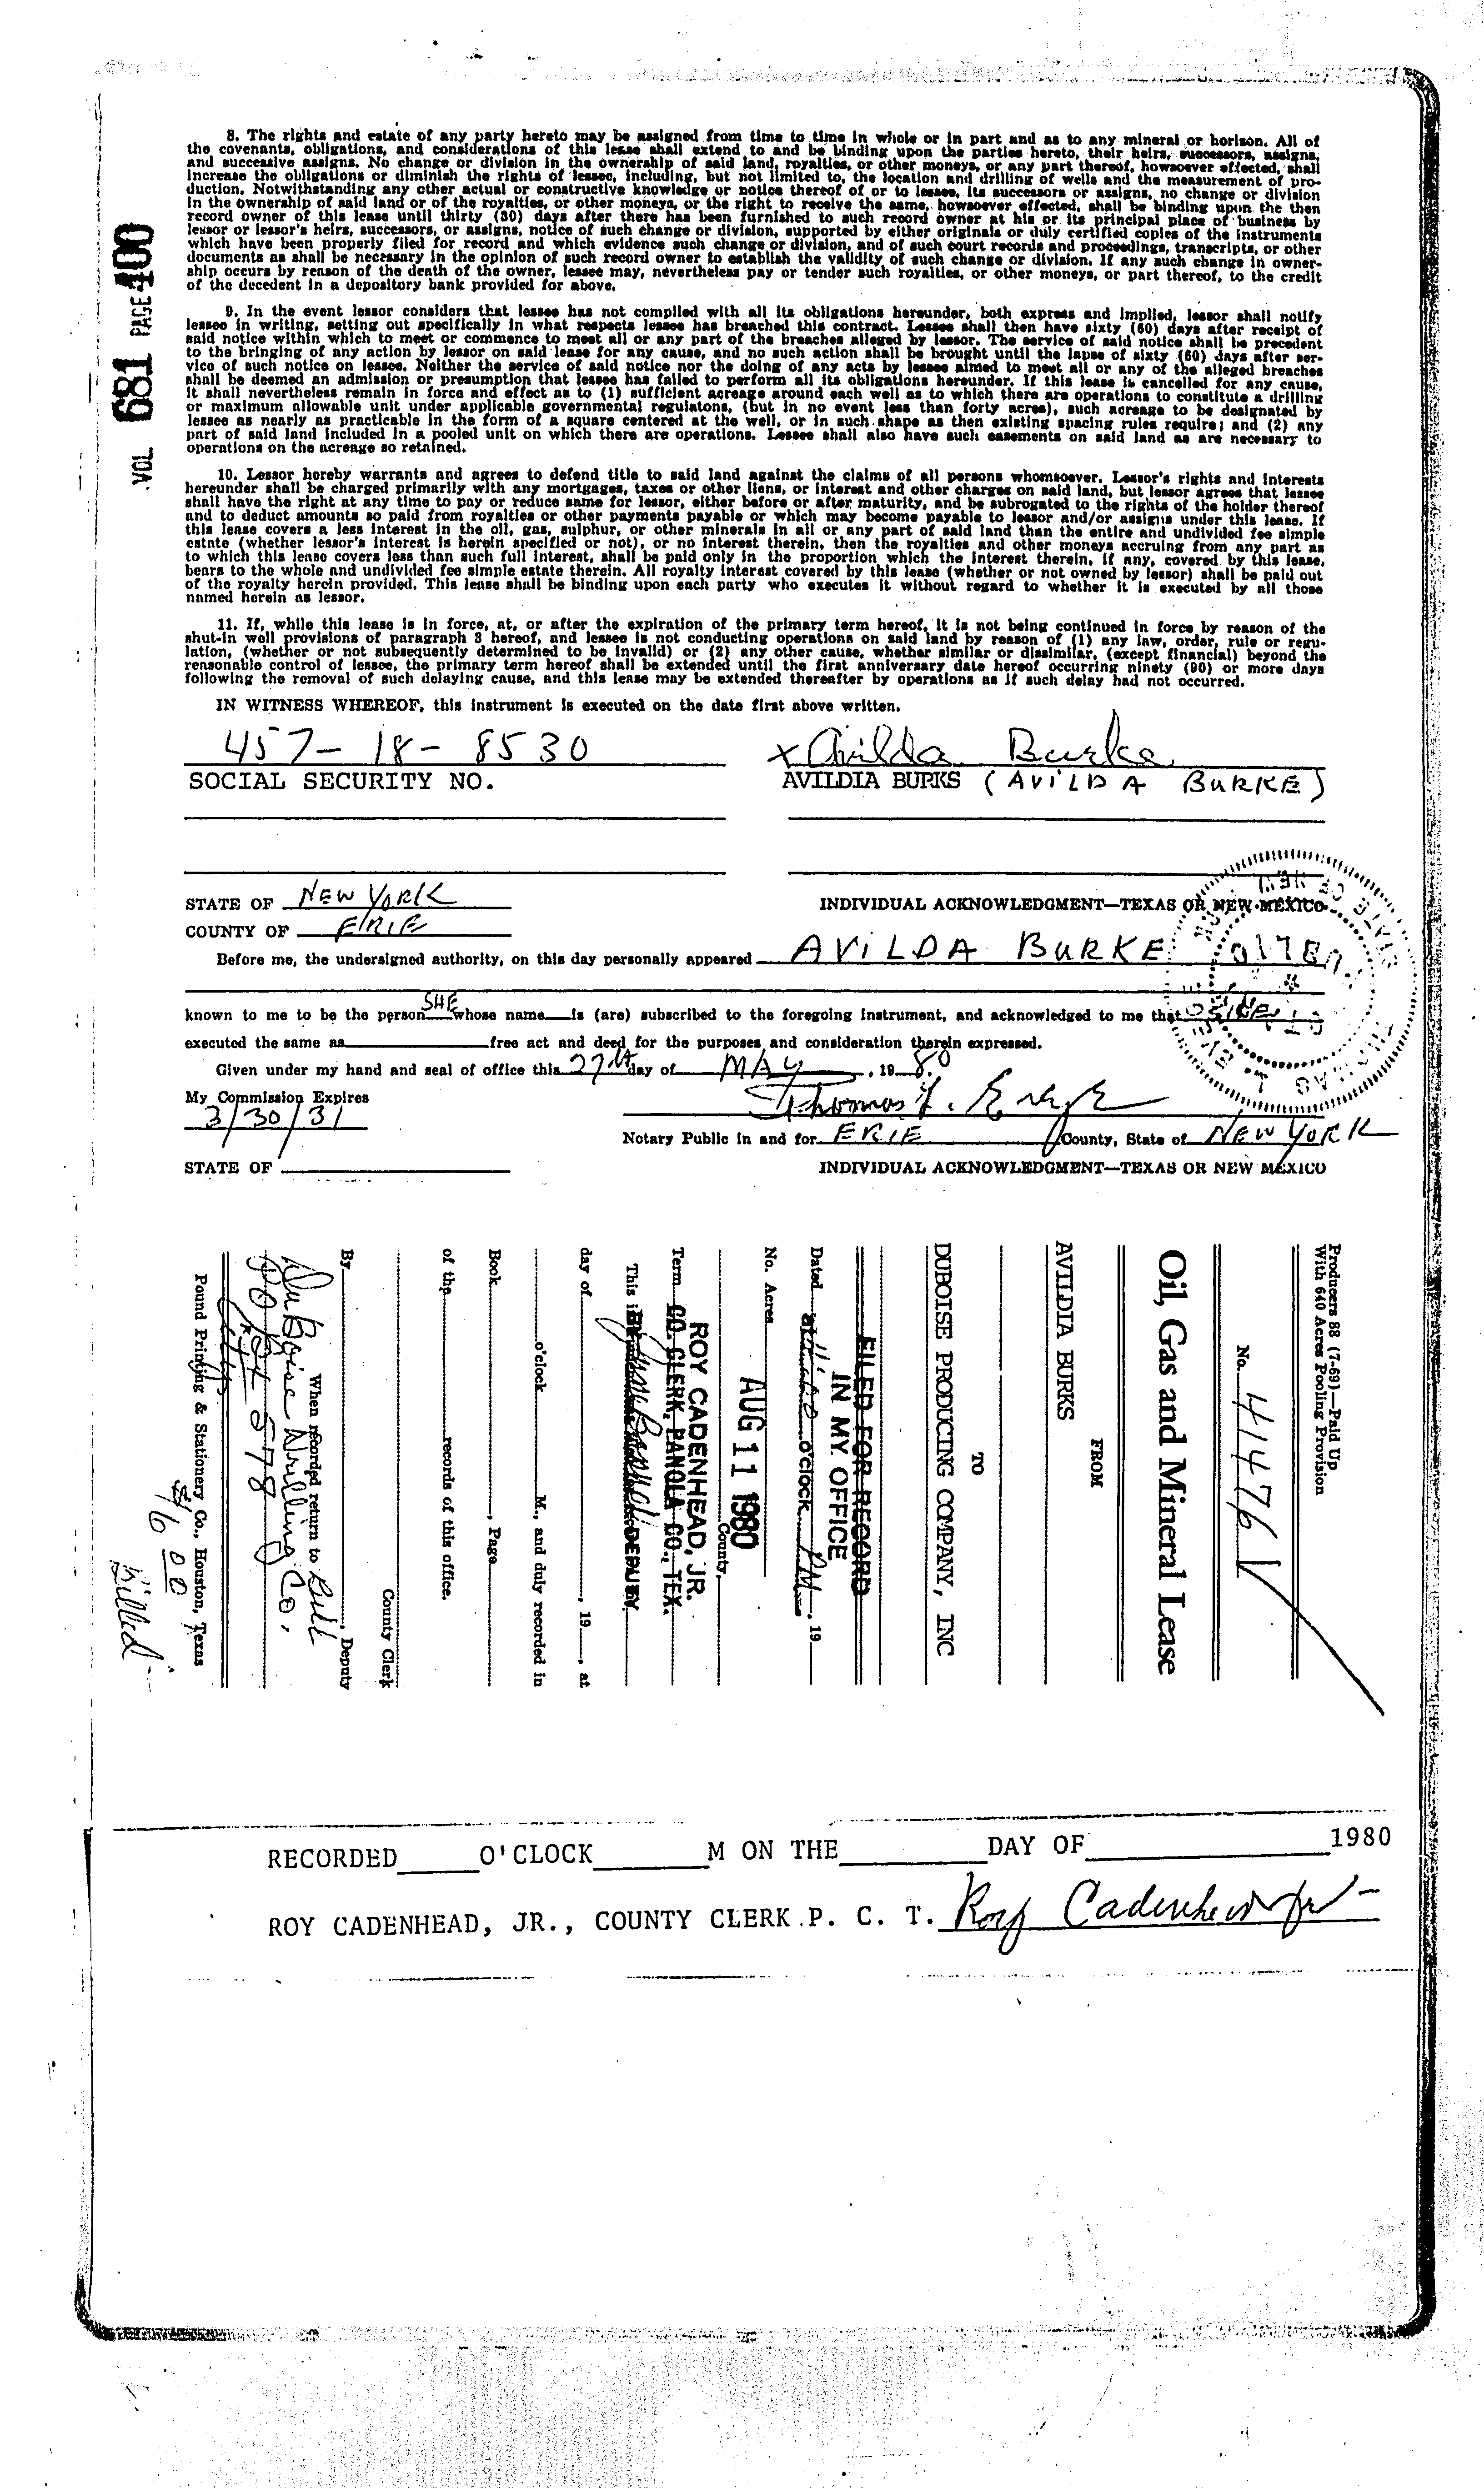 VOL 681 PAGE 400
8. The rights and estate of any party hereto may be assigned from time to time in whole or in part and as to any mineral or horison. All of
the covenants, obligations, and considerations of this lease shall extend to and be binding upon the parties hereto, their heirs, successors, assigns,
and successive assigns. No change or division in the ownership of said land, royalties, or other moneys, or any part thereof, howsoever effected, shall
increase the obligations or diminish the rights of lessee, including, but not limited to, the location and drilling of wells and the measurement of pro-
duction. Notwithstanding any other actual or constructive knowledge or notice thereof of or to lessee, its successors or assigns, no change or division
in the ownership of said land or of the royalties, or other moneys, or the right to receive the same, howsoever effected, shall be binding upon the then
record owner of this lease until thirty (30) days after there has been furnished to such record owner at his or its principal place of business by
lessor or lessor's heirs, successors, or assigns, notice of such change or division, supported by either originals or duly certified copies of the instruments
which have been properly filed for record and which evidence such change or division, and of such court records and proceedings, transcripts, or other
documents as shall be necessary in the opinion of such record owner to establish the validity of such change or division. If any such change in owner-
ship occurs by reason of the death of the owner, lessee may, nevertheless pay or tender such royalties, or other moneys, or part thereof, to the credit
of the decedent in a depository bank provided for above.
9. In the event lessor considers that lessee has not complied with all its obligations hereunder, both express and implied, lessor shall notify
lessee in writing, setting out specifically in what respects lessee has breached this contract. Lessee shall then have sixty (60) days after receipt of
said notice within which to meet or commence to meet all or any part of the breaches alleged by lessor. The service of said notice shall be precedent
to the bringing of any action by lessor on said lease for any cause, and no such action shall be brought until the lapse of sixty (60) days after ser-
vice of such notice on lessee. Neither the service of said notice nor the doing of any acts by lessee aimed to meet all or any of the alleged breaches
shall be deemed an admission or presumption that lessee has failed to perform all its obligations hereunder. If this lease is cancelled for any cause,
it shall nevertheless remain in force and effect as to (1) sufficient acreage around each well as to which there are operations to constitute a drilling
or maximum allowable unit under applicable governmental regulatons, (but in no event less than forty acres), such acreage to be designated by
lessee as nearly as practicable in the form of a square centered at the well, or in such shape as then existing spacing rules require; and (2) any
part of said land included in a pooled unit on which there are operations. Lessee shall also have such easements on said land as are necessary to
operations on the acreage so retained.
10. Lessor hereby warrants and agrees to defend title to said land against the claims of all persons whomsoever. Lessor's rights and interests
hereunder shall be charged primarily with any mortgages, taxes or other liens, or interest and other charges on said land, but lessor agrees that lessee
shall have the right at any time to pay or reduce same for lessor, either before or after maturity, and be subrogated to the rights of the holder thereof
and to deduct amounts so paid from royalties or other payments payable or which may become payable to lessor and/or assigns under this lease. If
this lease covers a less interest in the oil, gas, sulphur, or other minerals in all or any part of said land than the entire and undivided fee simple
estate (whether lessor's interest is herein specified or not), or no interest therein, then the royalties and other moneys accruing from any part as
to which this lease covers less than such full interest, shall be paid only in the proportion which the interest therein, if any, covered by this lease,
bears to the whole and undivided fee simple estate therein. All royalty interest covered by this lease (whether or not owned by lessor) shall be paid out
of the royalty herein provided. This lease shall be binding upon each party who executes it without regard to whether it is executed by all those
named herein as lessor.
11. If, while this lease is in force, at, or after the expiration of the primary term hereof, it is not being continued in force by reason of the
shut-in well provisions of paragraph 3 hereof, and lessee is not conducting operations on said land by reason of (1) any law, order, rule or regu-
lation, (whether or not subsequently determined to be invalid) or (2) any other cause, whether similar or dissimilar, (except financial) beyond the
reasonable control of lessee, the primary term hereof shall be extended until the first anniversary date hereof occurring ninety (90) or more days
following the removal of such delaying cause, and this lease may be extended thereafter by operations as if such delay had not occurred.
IN WITNESS WHEREOF, this instrument is executed on the date first above written.
457-18-8530 x Avilda Burke
SOCIAL SECURITY NO. AVILDIA BURKS (AVILDA BURKE)
STATE OF NEW YORK INDIVIDUAL ACKNOWLEDGMENT—TEXAS OR NEW MEXICO
COUNTY OF ERIE
Before me, the undersigned authority, on this day personally appeared AVILDA BURKE
known to me to be the person SHE whose name is (are) subscribed to the foregoing instrument, and acknowledged to me that SHE
executed the same as free act and deed for the purposes and consideration therein expressed.
Given under my hand and seal of office this 27th day of MAY, 1980.
My Commission Expires
3/30/31
Notary Public in and for ERIE County, State of NEW YORK
STATE OF INDIVIDUAL ACKNOWLEDGMENT—TEXAS OR NEW MEXICO
Producers 88 (7-69)—Paid Up
With 640 Acres Pooling Provision
No. 41476
Oil, Gas and Mineral Lease
FROM
AVILDIA BURKS
TO
DUBOISE PRODUCING COMPANY, INC
FILED FOR RECORD
IN MY OFFICE
Dated o'clock P.M., 19
No. Acres
AUG 11 1980
County,
ROY CADENHEAD, JR.
Term CO. CLERK, PANOLA CO., TEX.
This DEPUTY
day of , 19 , at
o'clock M., and duly recorded in
Book , Page
of the records of this office.
County Clerk
By , Deputy
When recorded return to Bill
DuBoise Drilling Co.
578
Pound Printing & Stationery Co., Houston, Texas
$6 00
Billed
RECORDED O'CLOCK M ON THE DAY OF 1980
ROY CADENHEAD, JR., COUNTY CLERK P. C. T. Roy Cadenhead Jr